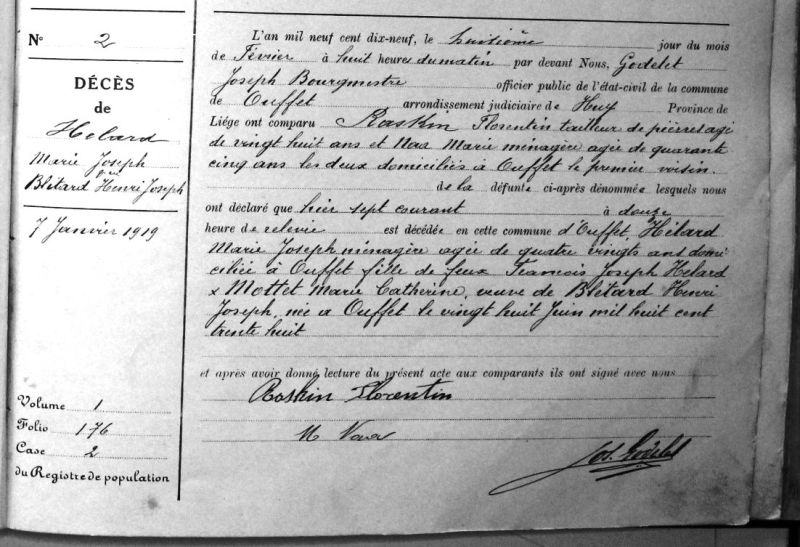 N° 2
DÉCÈS
de
Hélard
Marie Joseph
Blétard Henri Joseph
7 Janvier 1919
Volume 1
Folio 176
Case 2
du Registre de population
L'an mil neuf cent dix-neuf, le huitième jour du mois
de Février à huit heures du matin par devant Nous, Godelet
Joseph Bourgmestre officier public de l'état-civil de la commune
de Ouffet arrondissement judiciaire de Huy Province de
Liége ont comparu Raskin Florentin tailleur de pierres agé
de vingt huit ans et Marie ménagère agée de quarante
cinq ans les deux domiciliés à Ouffet le premier voisin
de la défunte ci-après dénommée lesquels nous
ont déclaré que hier sept courant à douze
heure de relevée est décédée en cette commune d'Ouffet, Hélard
Marie Joseph ménagère agée de quatre vingts ans domi
ciliée à Ouffet fille de feux François Joseph Hélard
x Mottet Marie Catherine, veuve de Blétard Henri
Joseph, née a Ouffet le vingt huit Juin mil huit cent
trente huit
et après avoir donné lecture du présent acte aux comparants ils ont signé avec nous
Raskin Florentin
M
Jos. Godelet